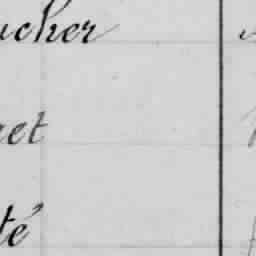 ucher
et
té